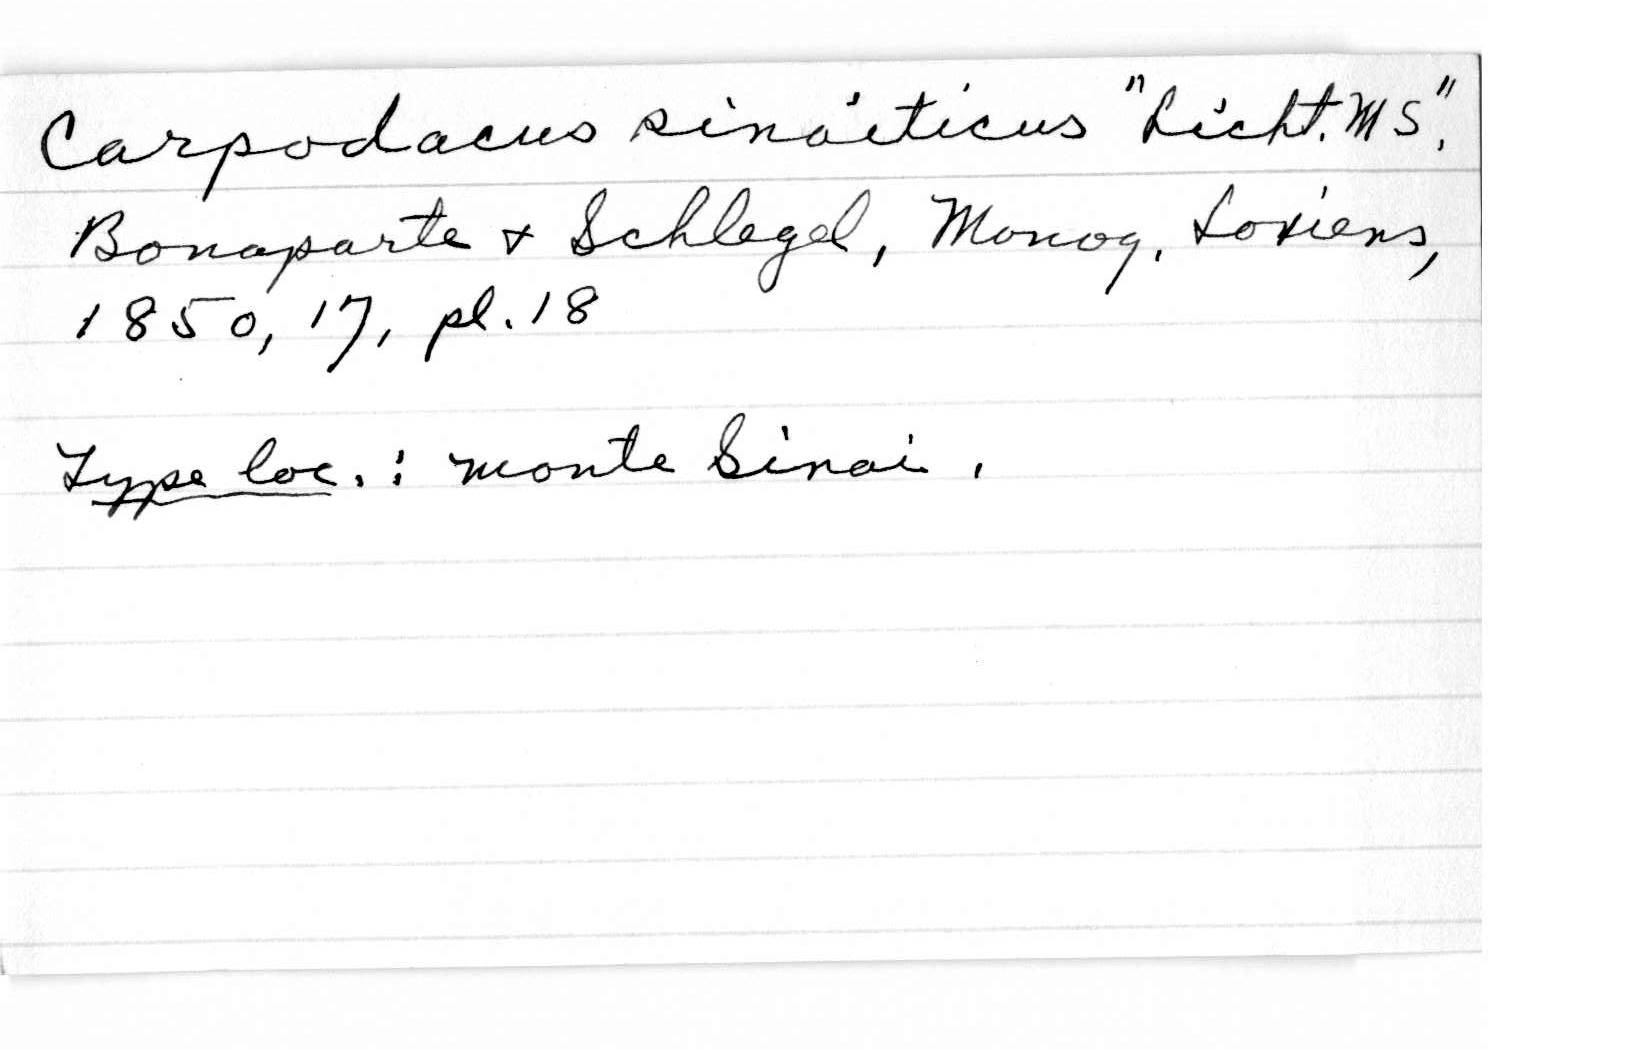 Carpodacus sinaiticus "Licht. MS",
Bonaparte & Schlegel, Monog. Loxiens,
1850, 17, pl. 18
Type loc.: monte Sinai.